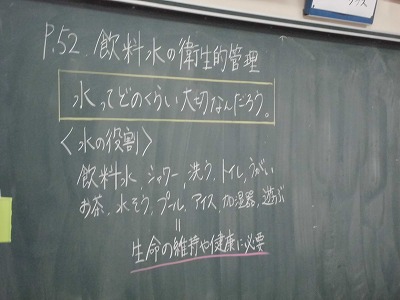 P.52 飲料水の衛生的管理
水ってどのくらい大切なんだろう。
〈水の役割〉
飲料水、シャワー、洗う、トイレ、うがい
お茶、水そう、プール、アイス、加湿器、遊ぶ
=
生命の維持や健康に必要